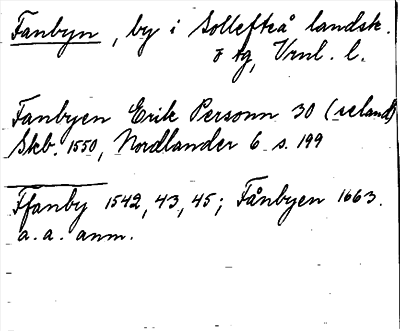 Fanbyn, by i Sollefteå landsk.
o tg, Vrnl. l.
Fanbyen Erik Personn 30 (seland)
Skb. 1550, Nordlander 6 s. 199
Ffanby 1542, 43, 45; Fånbyen 1663.
a. a. anm.